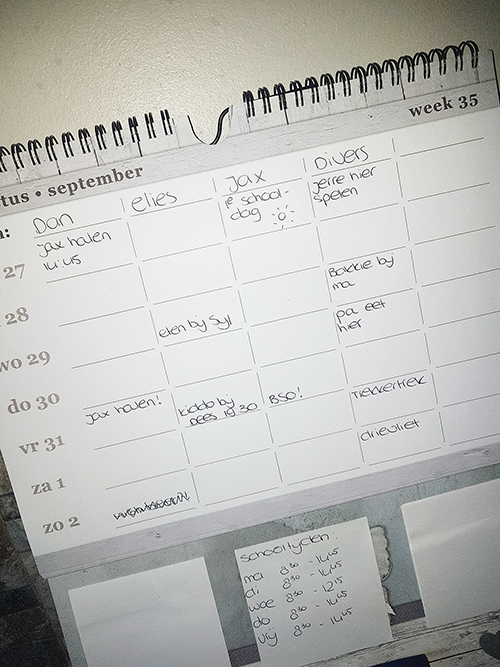 week 35
tus • september
Dan elies Jax Divers
27
Jax halen
14:45
1e school-
dag
Jerre hier
spelen
28
Bakkie bij
ma
wo 29
eten bij Syl
pa eet
hier
do 30
Jax halen!
kiddo bij
19 30
BSO!
Trekkertrek
vr 31
drievliet
za 1
zo 2
schooltijden:
ma 8 30 - 14 45
di 8 30 - 14 45
woe 8 30 - 12 15
do 8 30 - 14 45
vrij 8 30 - 14 45